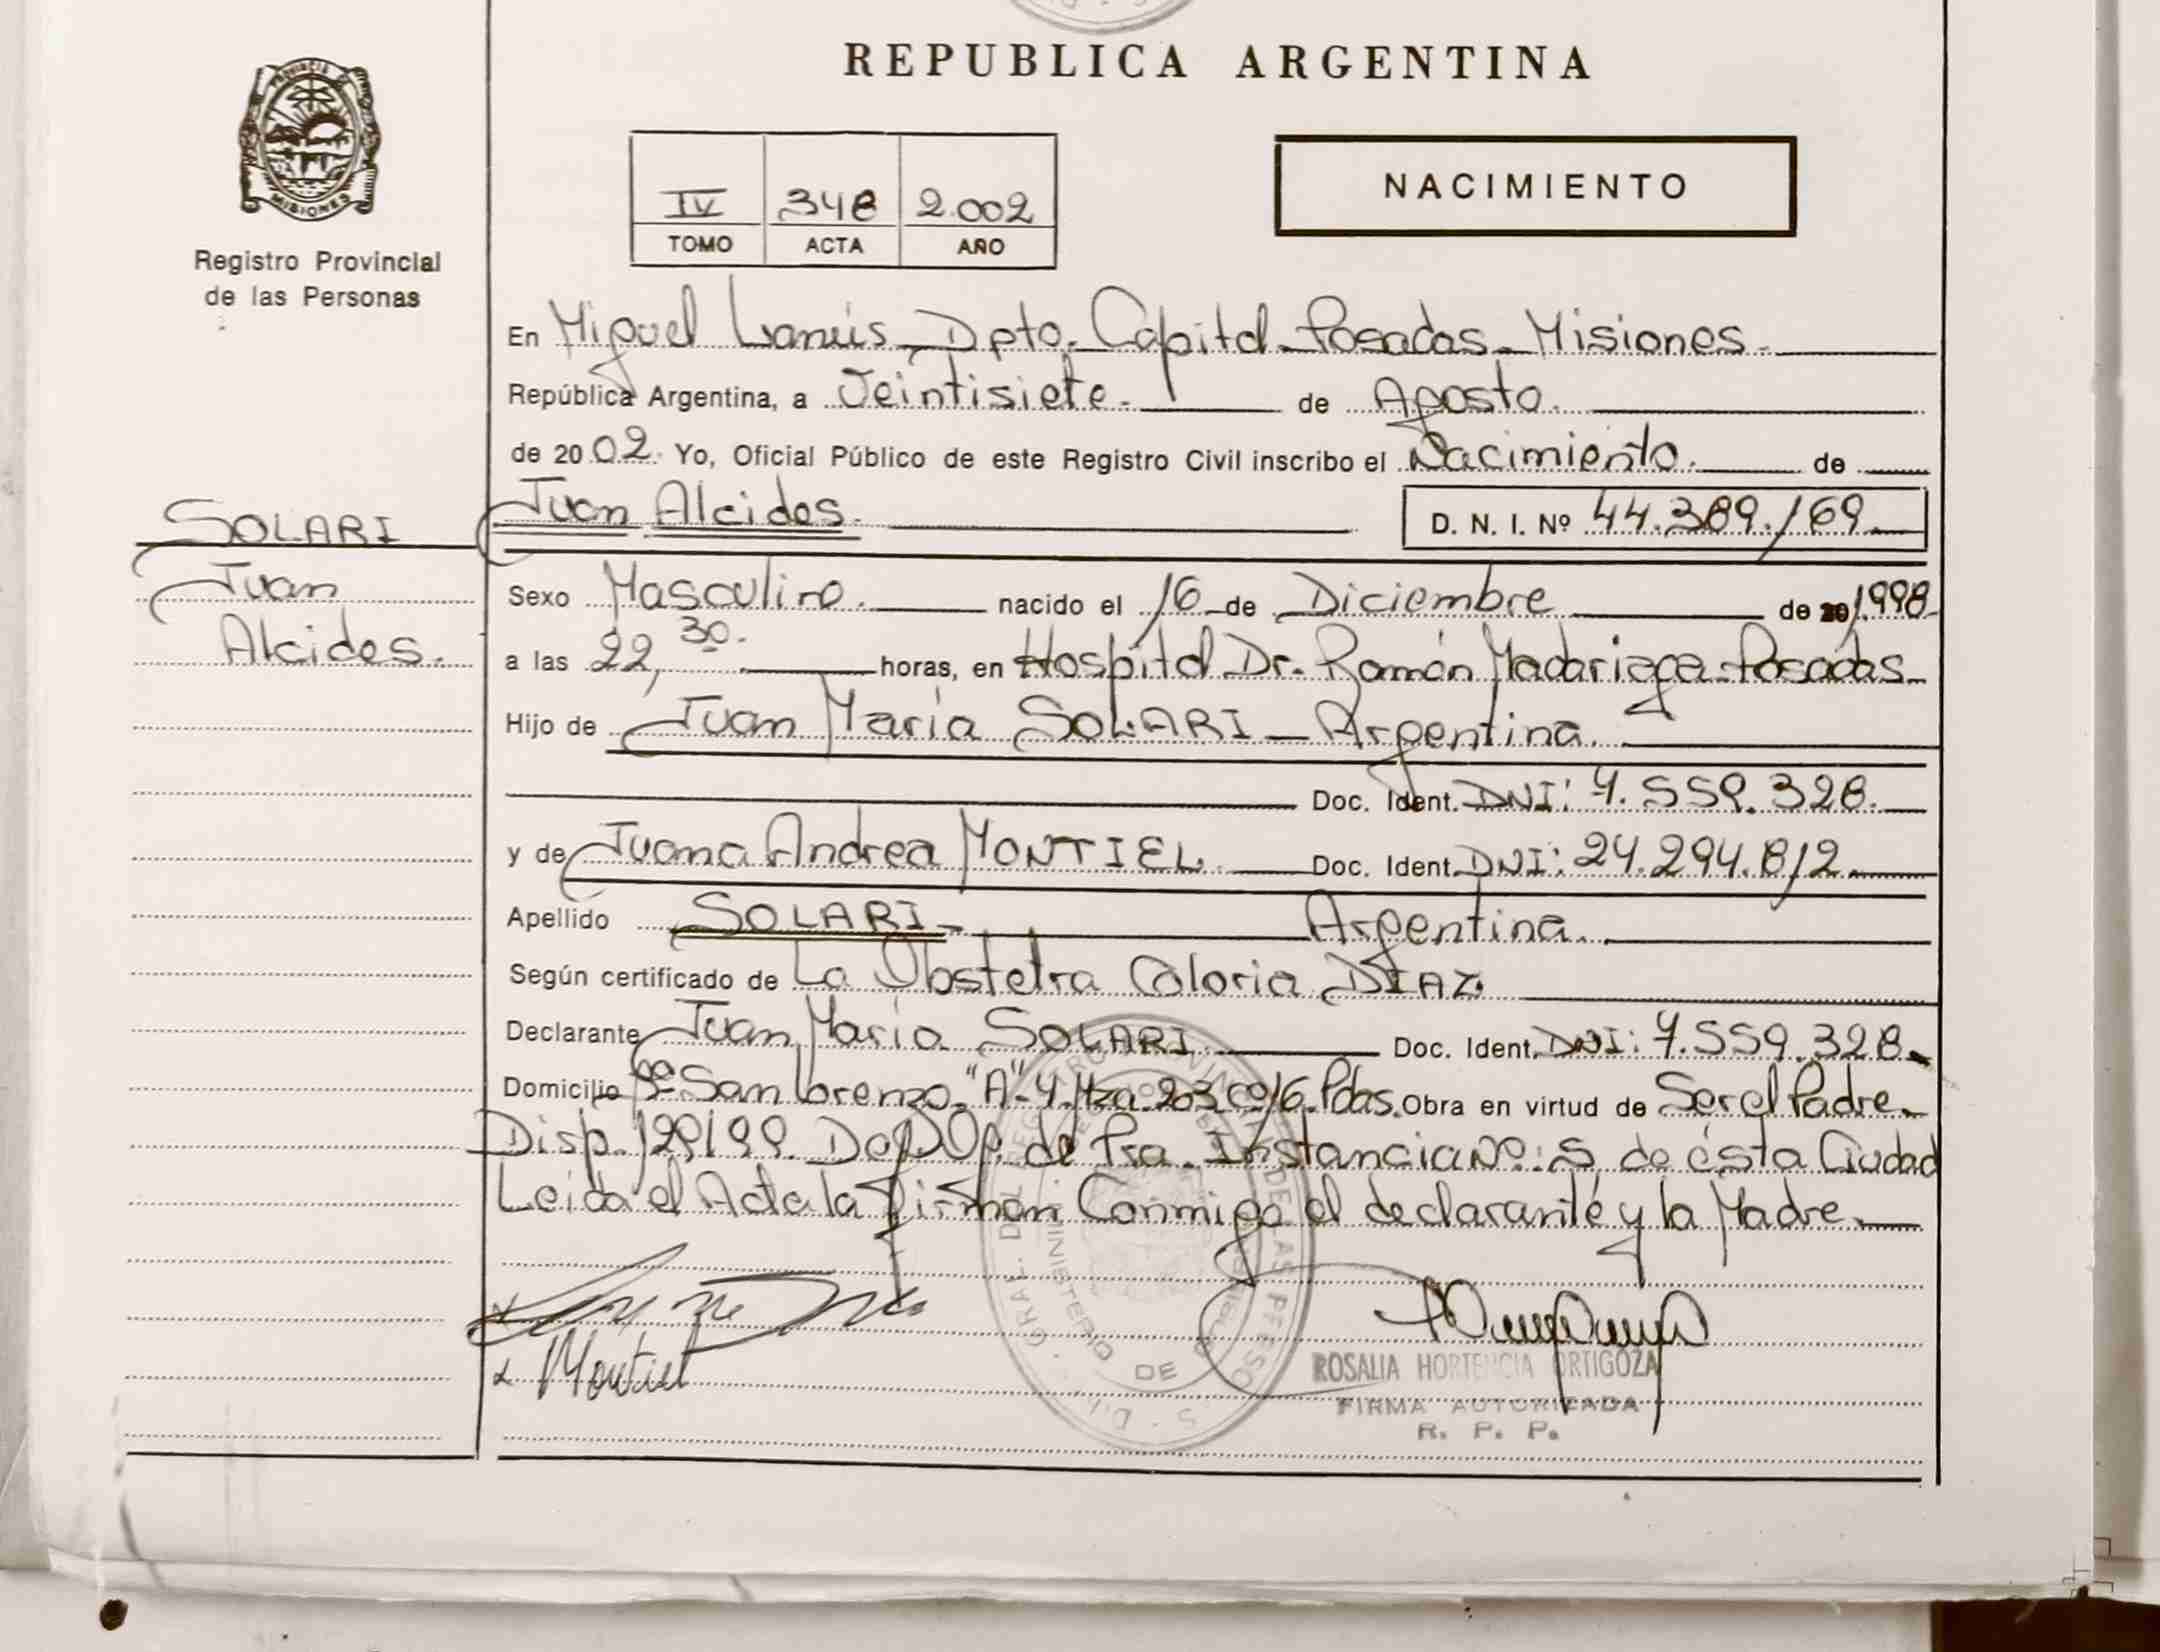 REPUBLICA ARGENTINA
PROVINCIA DE
MISIONES
Registro Provincial
de las Personas
IV 348 2.002
TOMO ACTA AÑO
NACIMIENTO
En Miguel Lanús, Dpto. Capital - Posadas - Misiones.
República Argentina, a Veintisiete. de Agosto.
de 2002. Yo, Oficial Público de este Registro Civil inscribo el Nacimiento. de
SOLARI
Juan
Alcides.
Juan Alcides. D. N. I. Nº 44.389.169.
Sexo Masculino. nacido el 16 de Diciembre de 20 1998.
a las 22,30. horas, en Hospital Dr. Ramón Madariaga - Posadas
Hijo de Juan María SOLARI - Argentina.
Doc. Ident. DNI: 7.559.328.
y de Juana Andrea MONTIEL. Doc. Ident. DNI: 24.294.812.
Apellido SOLARI - Argentina.
Según certificado de La Obstetra Gloria DIAZ.
Declarante Juan María SOLARI. Doc. Ident. DNI: 7.559.328.
Domicilio Bº San Lorenzo "A" 4. Mza. 203 Cº 16. Pdas. Obra en virtud de Ser el Padre.
Disp. 129/99. Def. Of. de Pra. Instancia Nº: 5 de ésta Ciudad
Leida el Acta la firman Conmigo el declarante y la Madre.
Montiel
ROSALIA HORTENCIA ORTIGOZA
FIRMA AUTORIZADA
R. P. P.